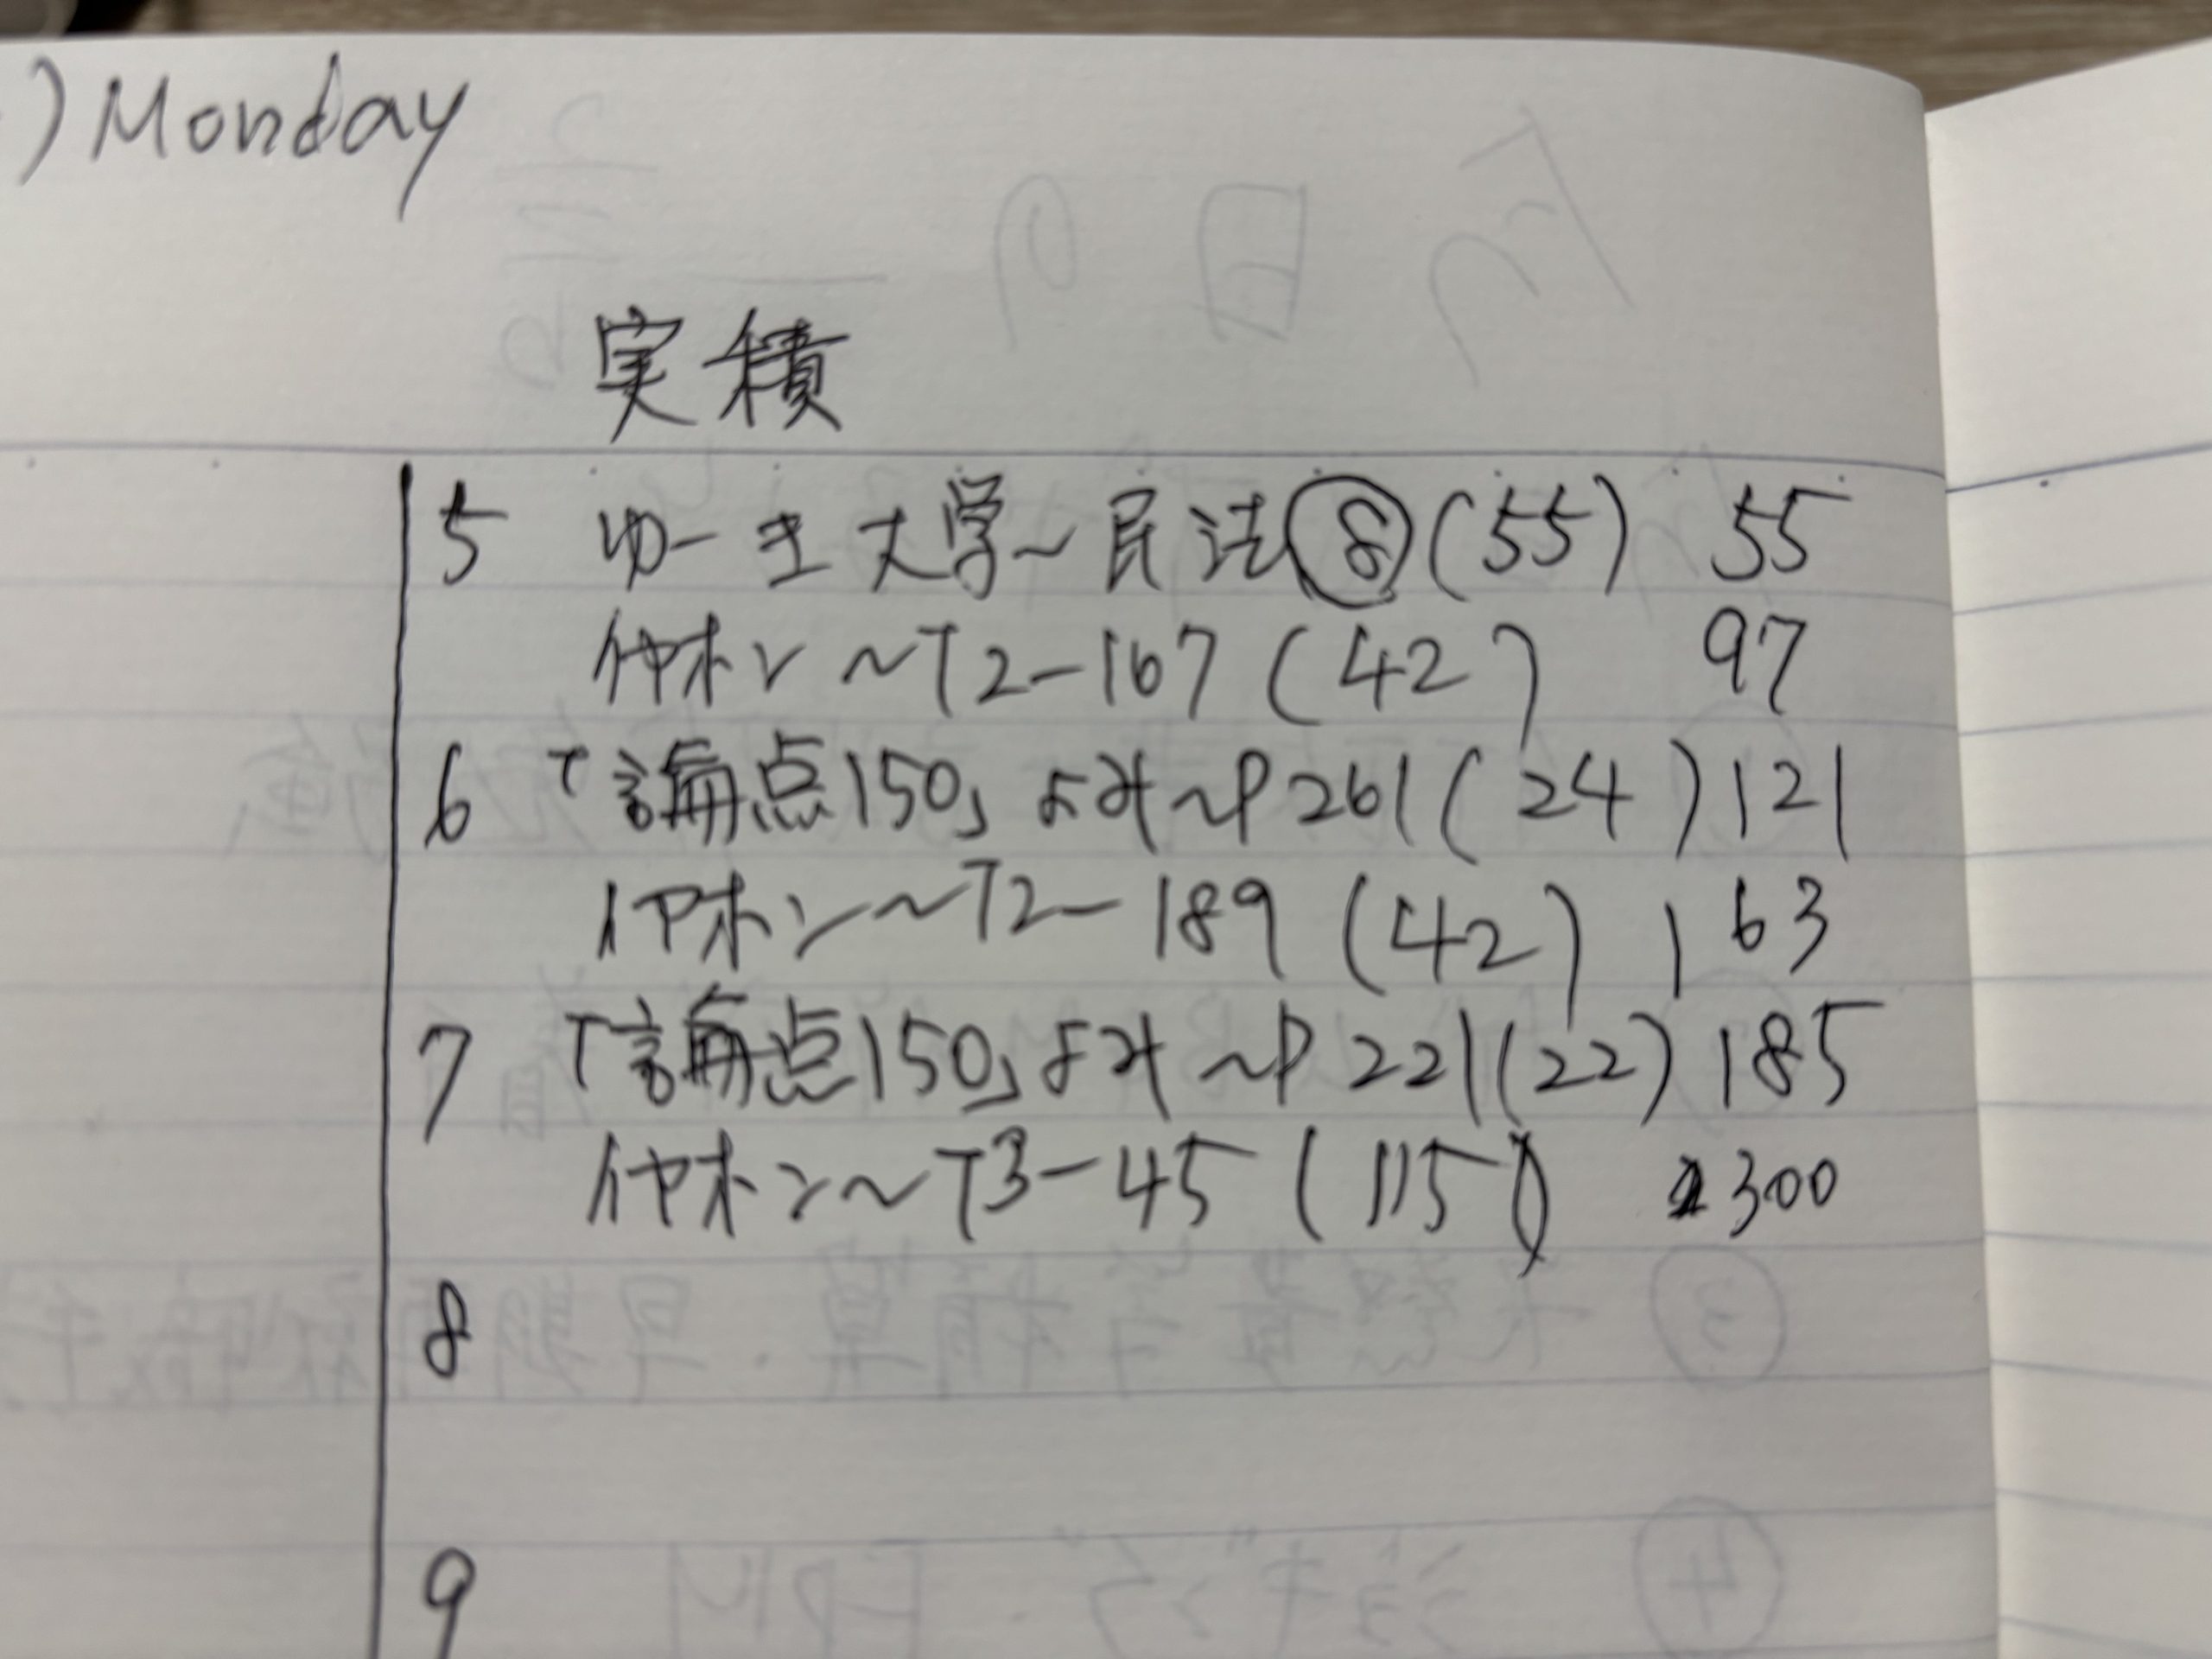 ) Monday
実積
5 ゆーき大学〜民法⑧(55) 55
イヤホン〜T2-167(42) 97
6 「論点150」よみ〜P261(24) 121
イヤホン〜T2-189(42) 163
7 「論点150」よみ〜P221(22) 185
イヤホン〜T3-45(115) 300
8
9